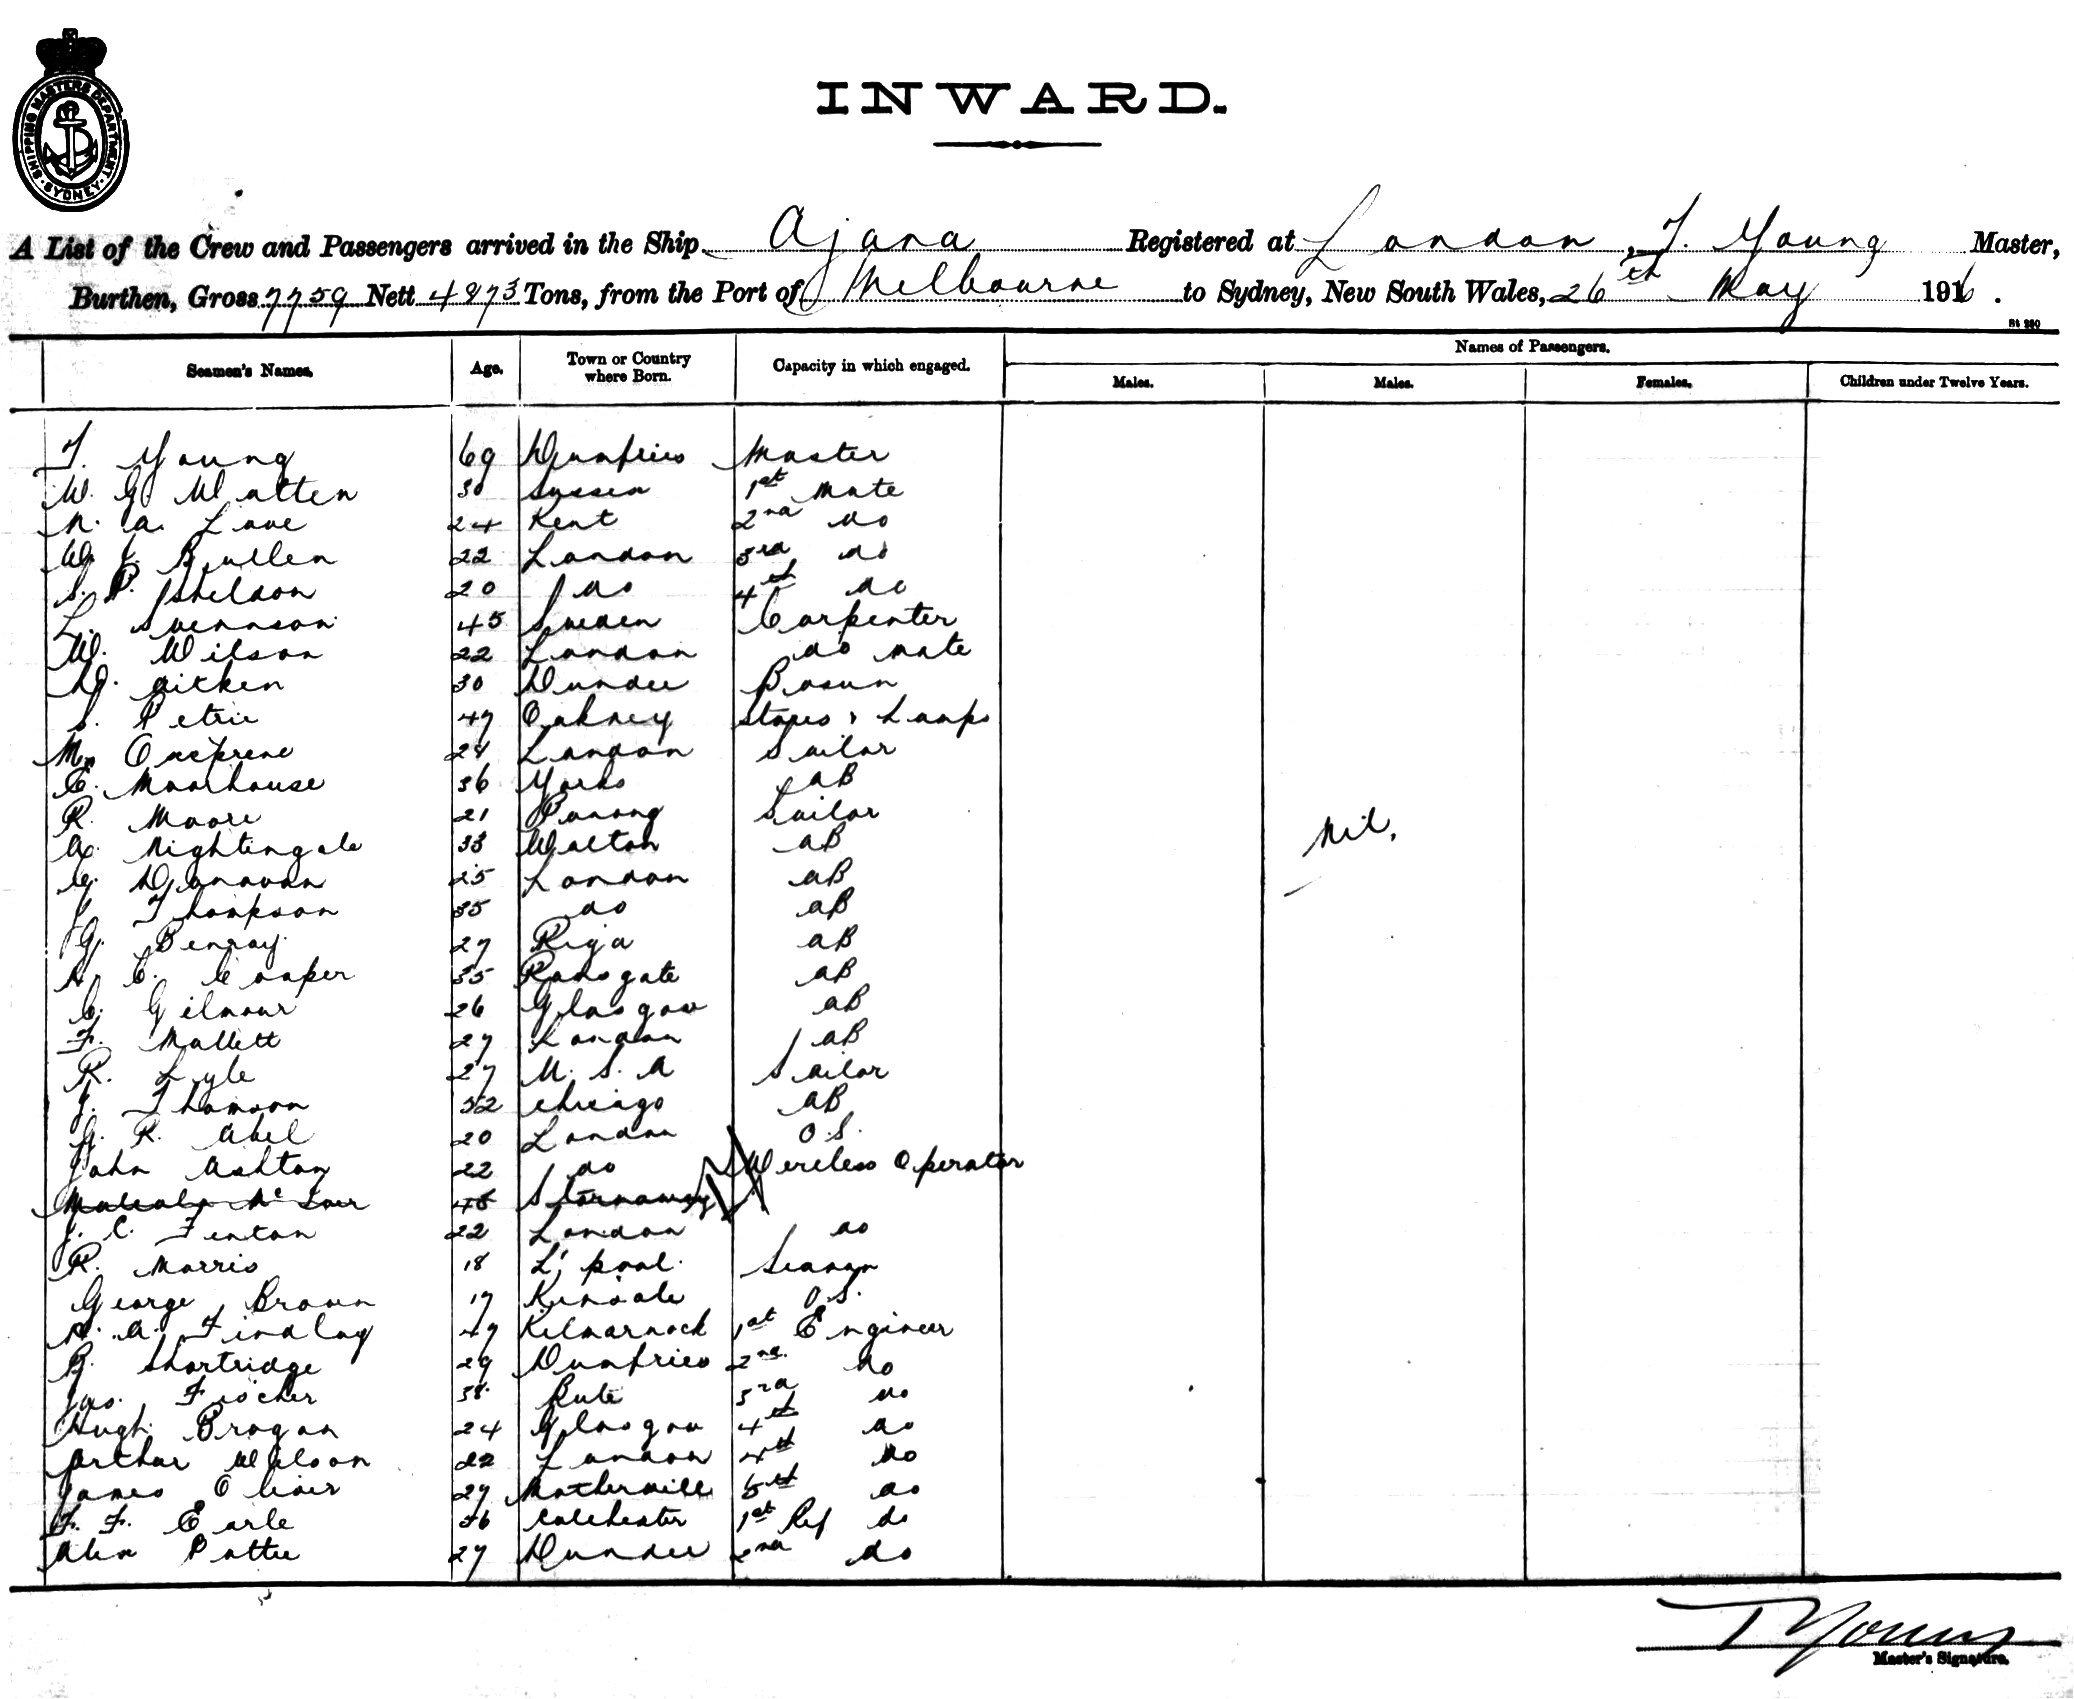 SHIPPING MASTERS DEPARTMENT SYDNEY
INWARD.
A List of the Crew and Passengers arrived in the Ship Ajana Registered at London, T. Young Master,
Burthen, Gross 7759 Nett 4873 Tons, from the Port of Melbourne to Sydney, New South Wales, 26th May 1916.
St 280
Seamen's Names. Age. Town or Country where Born. Capacity in which engaged. Names of Passengers.
Males. Males. Females. Children under Twelve Years.
T. Young 69 Dumfries Master
W. G. Watten 30 Sussex 1st Mate
N. A. Love 24 Kent 2nd do
W. Bullen 22 London 3rd do
S. P. Sheldon 20 do 4th do
L. Svennson 45 Sweden Carpenter
W. Wilson 22 London do mate
D. Aitken 30 Dundee Bosun
S. Petrie 47 Orkney Stores & Lamps
London Sailor
E. Moorhouse 36 Yorks AB
R. Moore 21 Penang Sailor
A. Nightingale 33 Walton AB
Donovan 25 London AB
J. Thompson 35 do AB
G. Benray 27 Riga AB
C. Cooper 35 Ramsgate AB
C. Gilmour 26 Glasgow AB
F. Mallett 27 London AB
R. Lyle 27 U.S.A Sailor
J. Thomson 52 Chicago AB
G. R. Abel 20 London O.S.
John Ashton 22 do Wireless Operator
Malcolm Mc 45 Stornaway
J. C. Fenton 22 London do
R. Morris 18 L'pool. Seaman
George Brown 17 Kinsale O.S.
A. Findlay 47 Kilmarnock 1st Engineer
G. Shortridge 29 Dumfries 2nd. do
Jas. Fischer 38 Bute 3rd do
Hugh Brogan 24 Glasgow 4th do
Arthur Wilson 22 London 4th do
James Oliver 27 Motherwell 5th do
F. F. Earle 36 Colchester 1st Ref do
Alex Pattie 27 Dundee 2nd do
Nil.
T Young
Master's Signature.